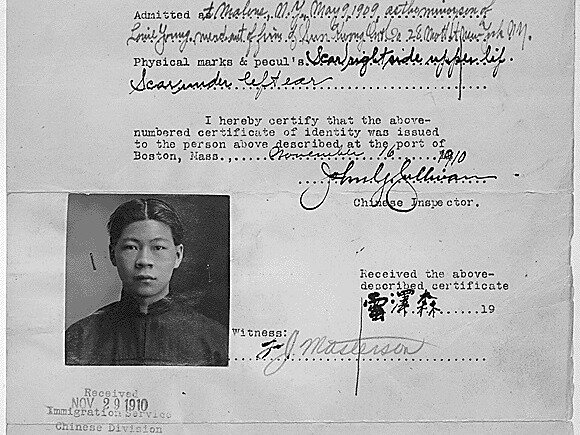 Admitted at Malone, N.Y. May 9, 1909, as the minor son of
Louie Young, merchant of firm of Quong Co. 26 Mott St. New York N.Y.
Physical marks & pecul's. Scar right side upper lip.
Scar under left ear
I hereby certify that the above-
numbered certificate of identity was issued
to the person above described at the port of
Boston, Mass., November 16 1910
John G. Sullivan
Chinese Inspector.
Received the above-
described certificate
雷澤森 19
Witness:
J. Masterson
Received
NOV 29 1910
Immigration Service
Chinese Division